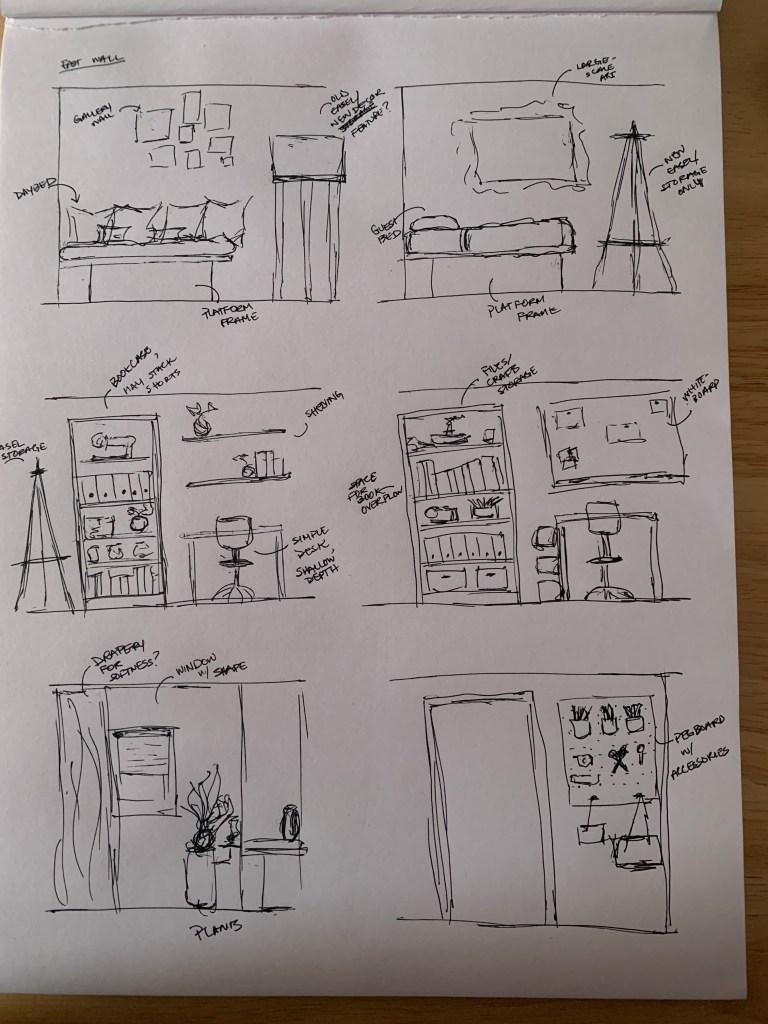 EAST WALL
GALLERY
WALL
OLD
EASEL/
NEW DECOR
STORAGE
FEATURE?
LARGE-
SCALE
ART
DAYBED
NEW
EASEL/
STORAGE
ONLY
GUEST
BED
PLATFORM
FRAME
PLATFORM
FRAME
BOOKCASE,
MAY STACK
SHORTS
SHELVING
EASEL
STORAGE
SIMPLE
DESK,
SHALLOW
DEPTH
FILES/
CRAFTS
STORAGE
WHITE-
BOARD
SPACE
FOR
BOOK
OVERFLOW
DRAPERY
FOR
SOFTNESS?
WINDOW
W/ SHADE
PLANTS
PEGBOARD
W/
ACCESSORIES